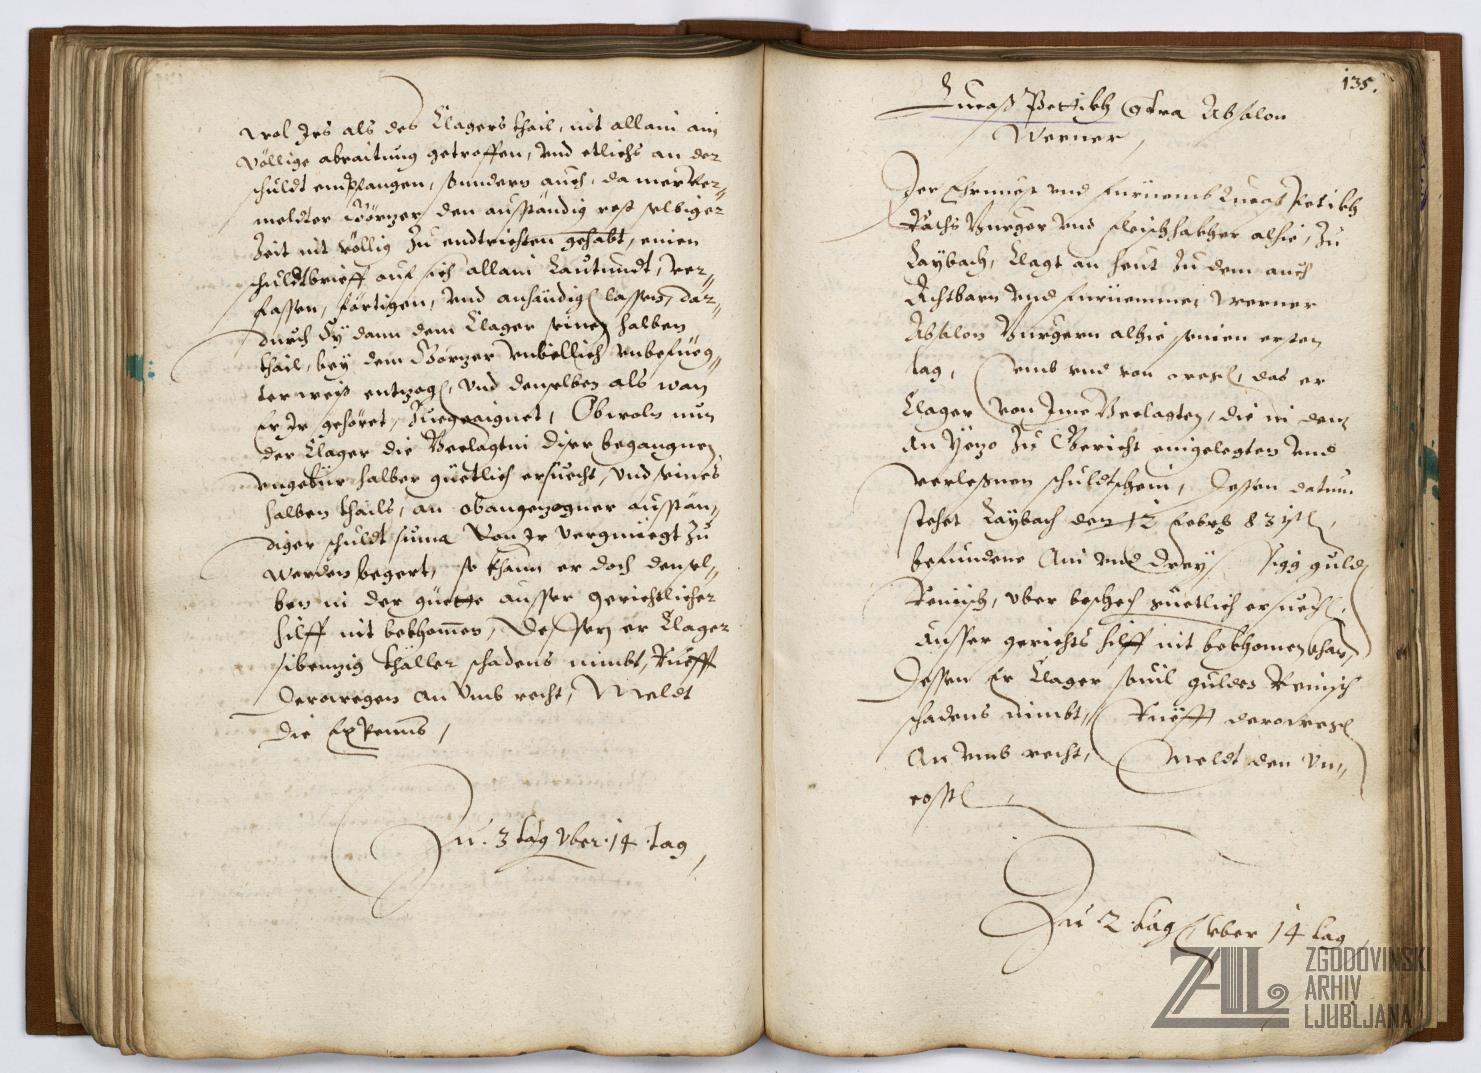 wol Irs als des Clagers thail, nit allain ain
völlige abraitung getroffen, vnd etlichs an der
schuldt empfangen, sondern auch, da mer ver-
meldter Görzer den ausständig rest selbiger
Zeit nit völlig zu endtrichten gehabt, einen
schuldtbrieff auf sich allain Lautundt, ver-
fassen, förtigen, vnd anhändigen lassen, dar-
durch Sÿ dann dem Clager seinen halben
thail, beÿ dem Görzer vnbillich vnbefueg-
ter weiß entzogen, vnd denselben als wan
Er Ir gehöret, Zuegeaignet, Obwoln nun
der Clager die Beclagtin diser begangnen
vngebür halber güetlich ersuecht, vnd seines
halben thails, an obangezogner ausstän-
diger schuldt suma von Ir vergnüegt zu
werden begert, so khann er doch densel-
ben in der güette ausser gerichtlicher
hilff nit bekhomen, Dessen er Clager
sibenzig thaller schadens nimbt, Rüefft
derowegen an vmb recht, Meldt
die Expenns,
Zu 3 tag vber 14 tag,
135.
Lucaß Petikh Contra Absolon
Werner,
Der Ernuest vnd Fürnemb Lucas Petikh
Rachs Burger vnd fleischhakher alhie, zu
Laybach, Clagt an heut zu dem auch
Achtbarn vnd Fürnemmen Werner
Absolon Burgern alhie seinen ersten
tag, vmb vnd von wegen, das er
Clager von Ime Beclagten, die in dem
an Yezo zu Gericht eingelegten vnd
verleßnen schuldtschein, dessen datum
stehet Laybach den 12 Febr: 83isten,
befundene Ain vnd Dreÿssigg guldn
Reinisch, vber beschech güetlich ersuechn,
ausser gerichts hilff nit bekhomen khan,
Dessen Er Clager souil gulden Reinisch
schadens nimbt, Rüefft derowegen
an vmb recht, Meldt den Vn-
cossten,
Zu 2 tag vber 14 tag
ZAL
ZGODOVINSKI
ARHIV
LJUBLJANA